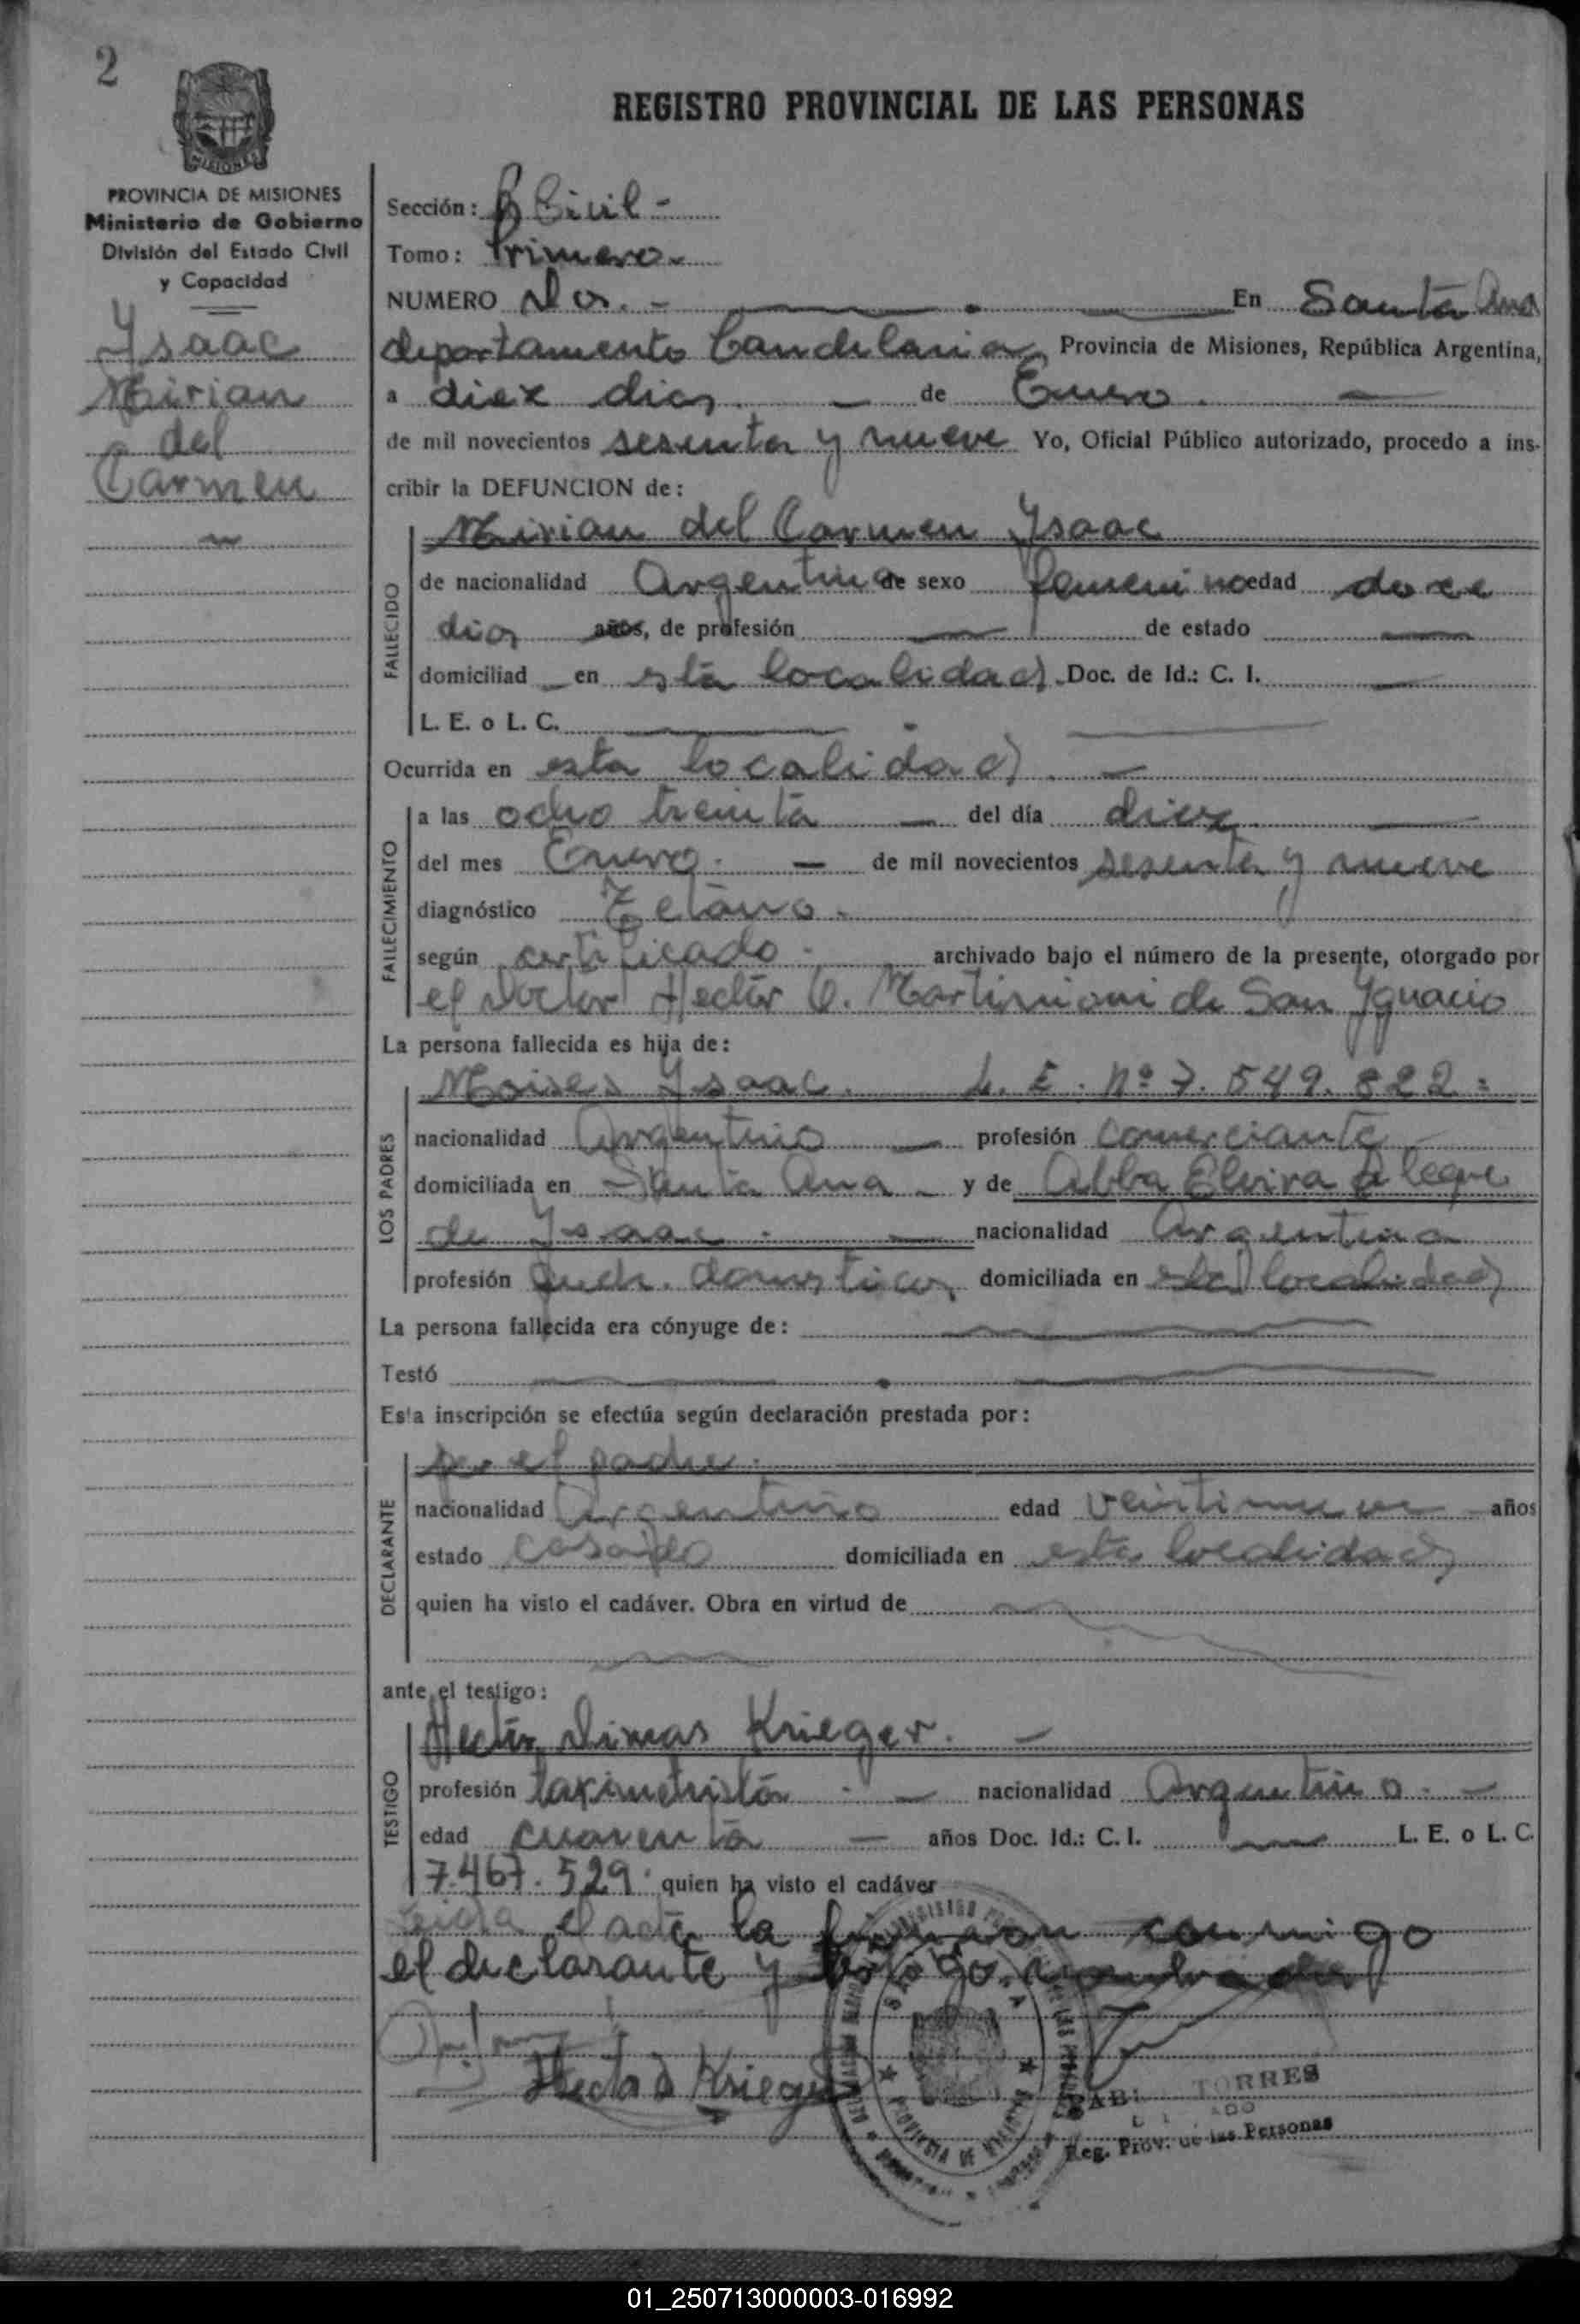 2
REGISTRO PROVINCIAL DE LAS PERSONAS
MISIONES
PROVINCIA DE MISIONES
Ministerio de Gobierno
División del Estado Civil
y Capacidad
Ysaac
Mirian
del
Carmen
Sección: R Civil -
Tomo: Primero
NUMERO Dos. - En Santa Ana
departamento Candelaria, Provincia de Misiones, República Argentina,
a diez dias de Enero.
de mil novecientos sesenta y nueve Yo, Oficial Público autorizado, procedo a ins-
cribir la DEFUNCION de:
FALLECIDO
Mirian del Carmen Ysaac
de nacionalidad Argentina de sexo femenino edad doce
dias años, de profesión — de estado —
domiciliad en esta localidad. Doc. de Id.: C. I. —
L. E. o L. C. —
Ocurrida en esta localidad. —
FALLECIMIENTO
a las ocho treinta — del día diez —
del mes Enero. — de mil novecientos sesenta y nueve
diagnóstico Tetano.
según certificado. archivado bajo el número de la presente, otorgado por
el Doctor Hector C. Martinioni de San Ygnacio
La persona fallecida es hija de:
LOS PADRES
Moises Ysaac. L. E. Nº 7.549.822 =
nacionalidad Argentino — profesión comerciante
domiciliada en Santa Ana - y de Abba Elvira Alegre
de Ysaac. — nacionalidad Argentina
profesión Queh. domesticos, domiciliada en esta localidad
La persona fallecida era cónyuge de: —
Testó —
Esta inscripción se efectúa según declaración prestada por:
DECLARANTE
por el padre.
nacionalidad Argentino edad veintinueve años
estado casado domiciliada en esta localidad
quien ha visto el cadáver. Obra en virtud de —
ante el testigo:
TESTIGO
Hector Dimas Krieger. —
profesión taximetrista — nacionalidad Argentino. —
edad cuarenta — años Doc. Id.: C. I. — L. E. o L. C.
7.467.529. quien ha visto el cadáver
Leida el acta la firman conmigo
el declarante y testigo. nombrados
Hector D Krieger
TORRES
Reg. Prov. de las Personas
01_250713000003-016992